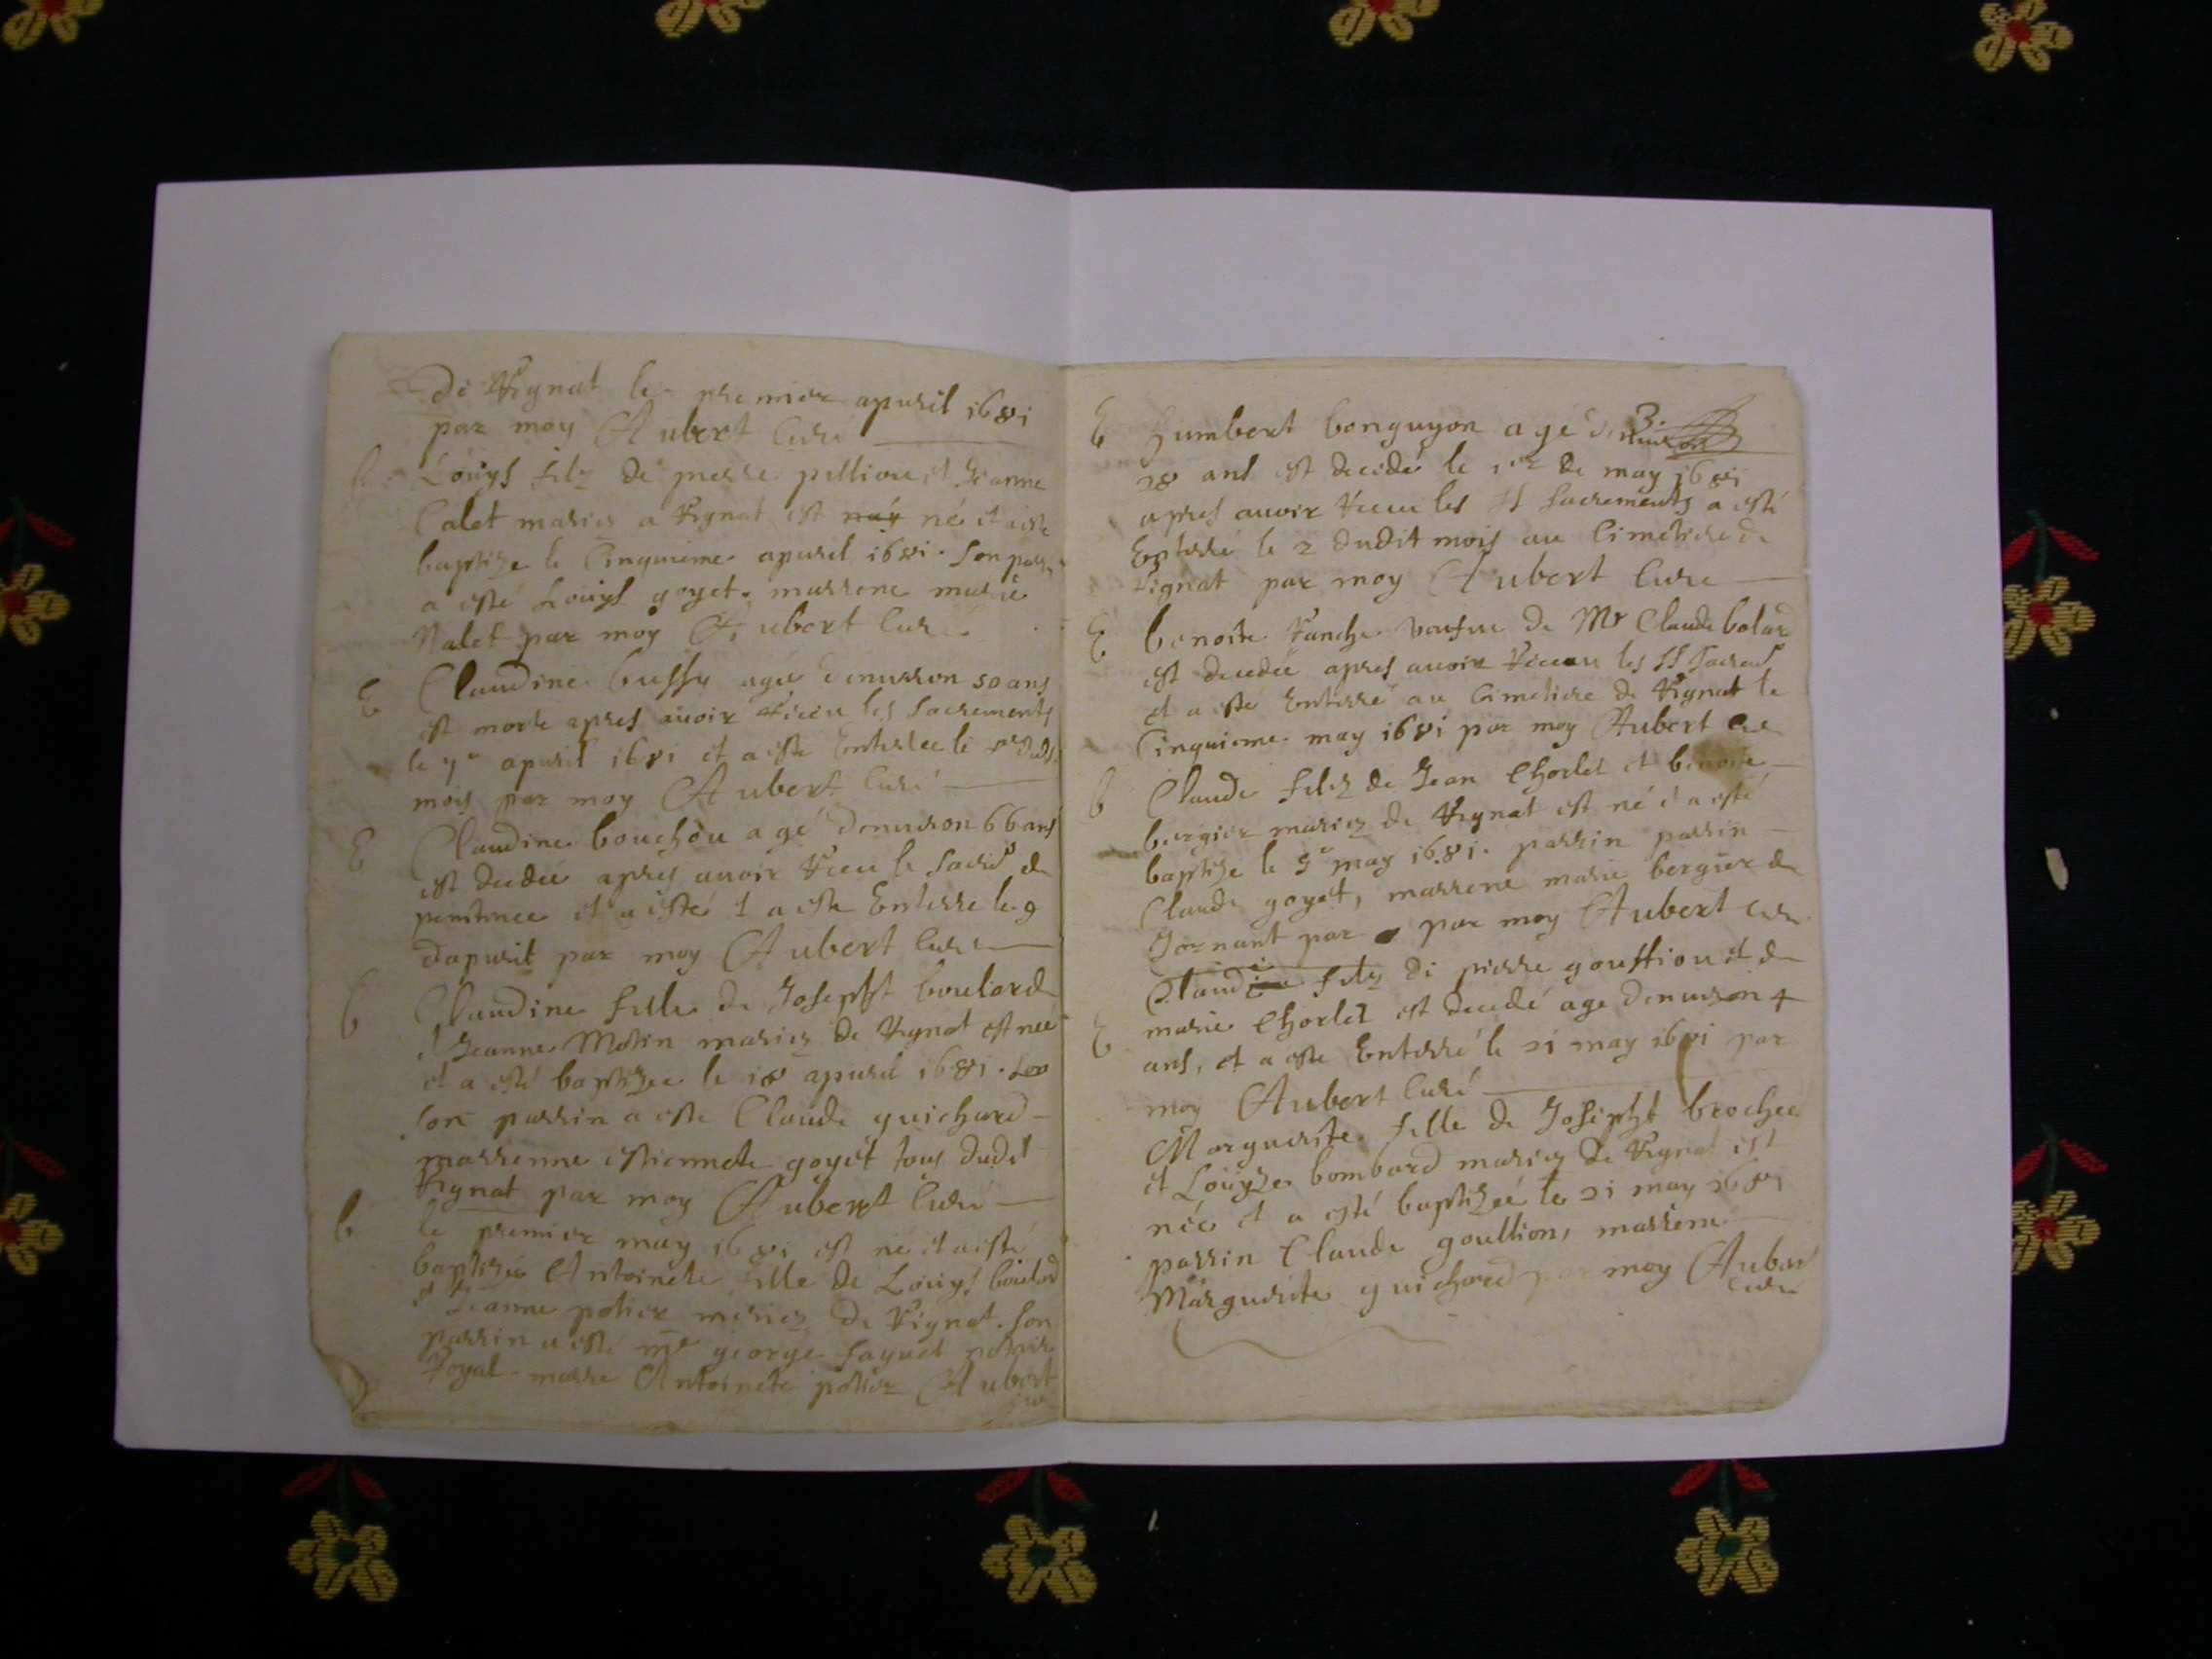 de Rignat le premier apvril 1681
par moy Aubert Curé
b Louys filz de pierre pillion et Jeanne
Calet mariez a Rignat est nay né et a esté
baptize le Cinquieme apvril 1681. Son parr
a esté Louys goyet. marrene marie
Nalet par moy Aubert Curé
E Claudine bussy agée denviron 50 ans
est morte apres avoir receu les Sacrements
le 7e apvril 1681 et a esté Enterree le dudt
mois par moy Aubert Curé
E Claudine bouchou agé denviron 66 ans
est decdee apres avoir receu le Sacrt de
penitence et a esté et a este Enterre le 9
dapvril par moy Aubert Curé
b Claudine fille de Josepht boulard
et Jeanne Motin mariez de Rignat est nee
et a esté baptizee le 18 apvril 1681. Son
son parrin a este Claude guichard
marrenne estiennete goyet tous dudt
Rignat par moy Aubert Curé
b le premier may 1681 est né et a esté
baptizée Antoinete fille de Louys boulard
et Jeanne potier mariez de Rignat. Son
parrin a esté me george faguet notaire
Royal. marre Antoinete potier Aubert
3.
E humbert bonguyon agé denviron
28 ans est decedé le 1er de may 1681
apres avoir receu les SS Sacrements a esté
Enterré le 2 dudit mois au Cimetiere de
Rignat par moy Aubert Curé
E benoite Vefve de Mr Claude bolard
est decedée apres avoir Receu les SS Sacremts
et a esté Enterré au Cimetiere de Rignat le
Cinquieme may 1681 par moy Aubert Curé
b Claude filz de Jean Chorlet et benoite
bergier mariez de Rignat est né et a esté
baptize le 5e may 1681. parrin parrin
Claude goyet, marrene marie bergier de
Jornant par par moy Aubert Curé
E Claude filz de pierre gouttion et de
marie Chorlet est decedé age denviron 4
ans, et a este Enterré le 21 may 1681 par
moy Aubert Curé
Marguerite fille de Josepht brochet
et Louyze bombard mariez de Rignat est
née et a esté baptizée le 21 may 1681
parrin Claude goullion, marrene
Marguerite guichard par moy Aubert
Curé